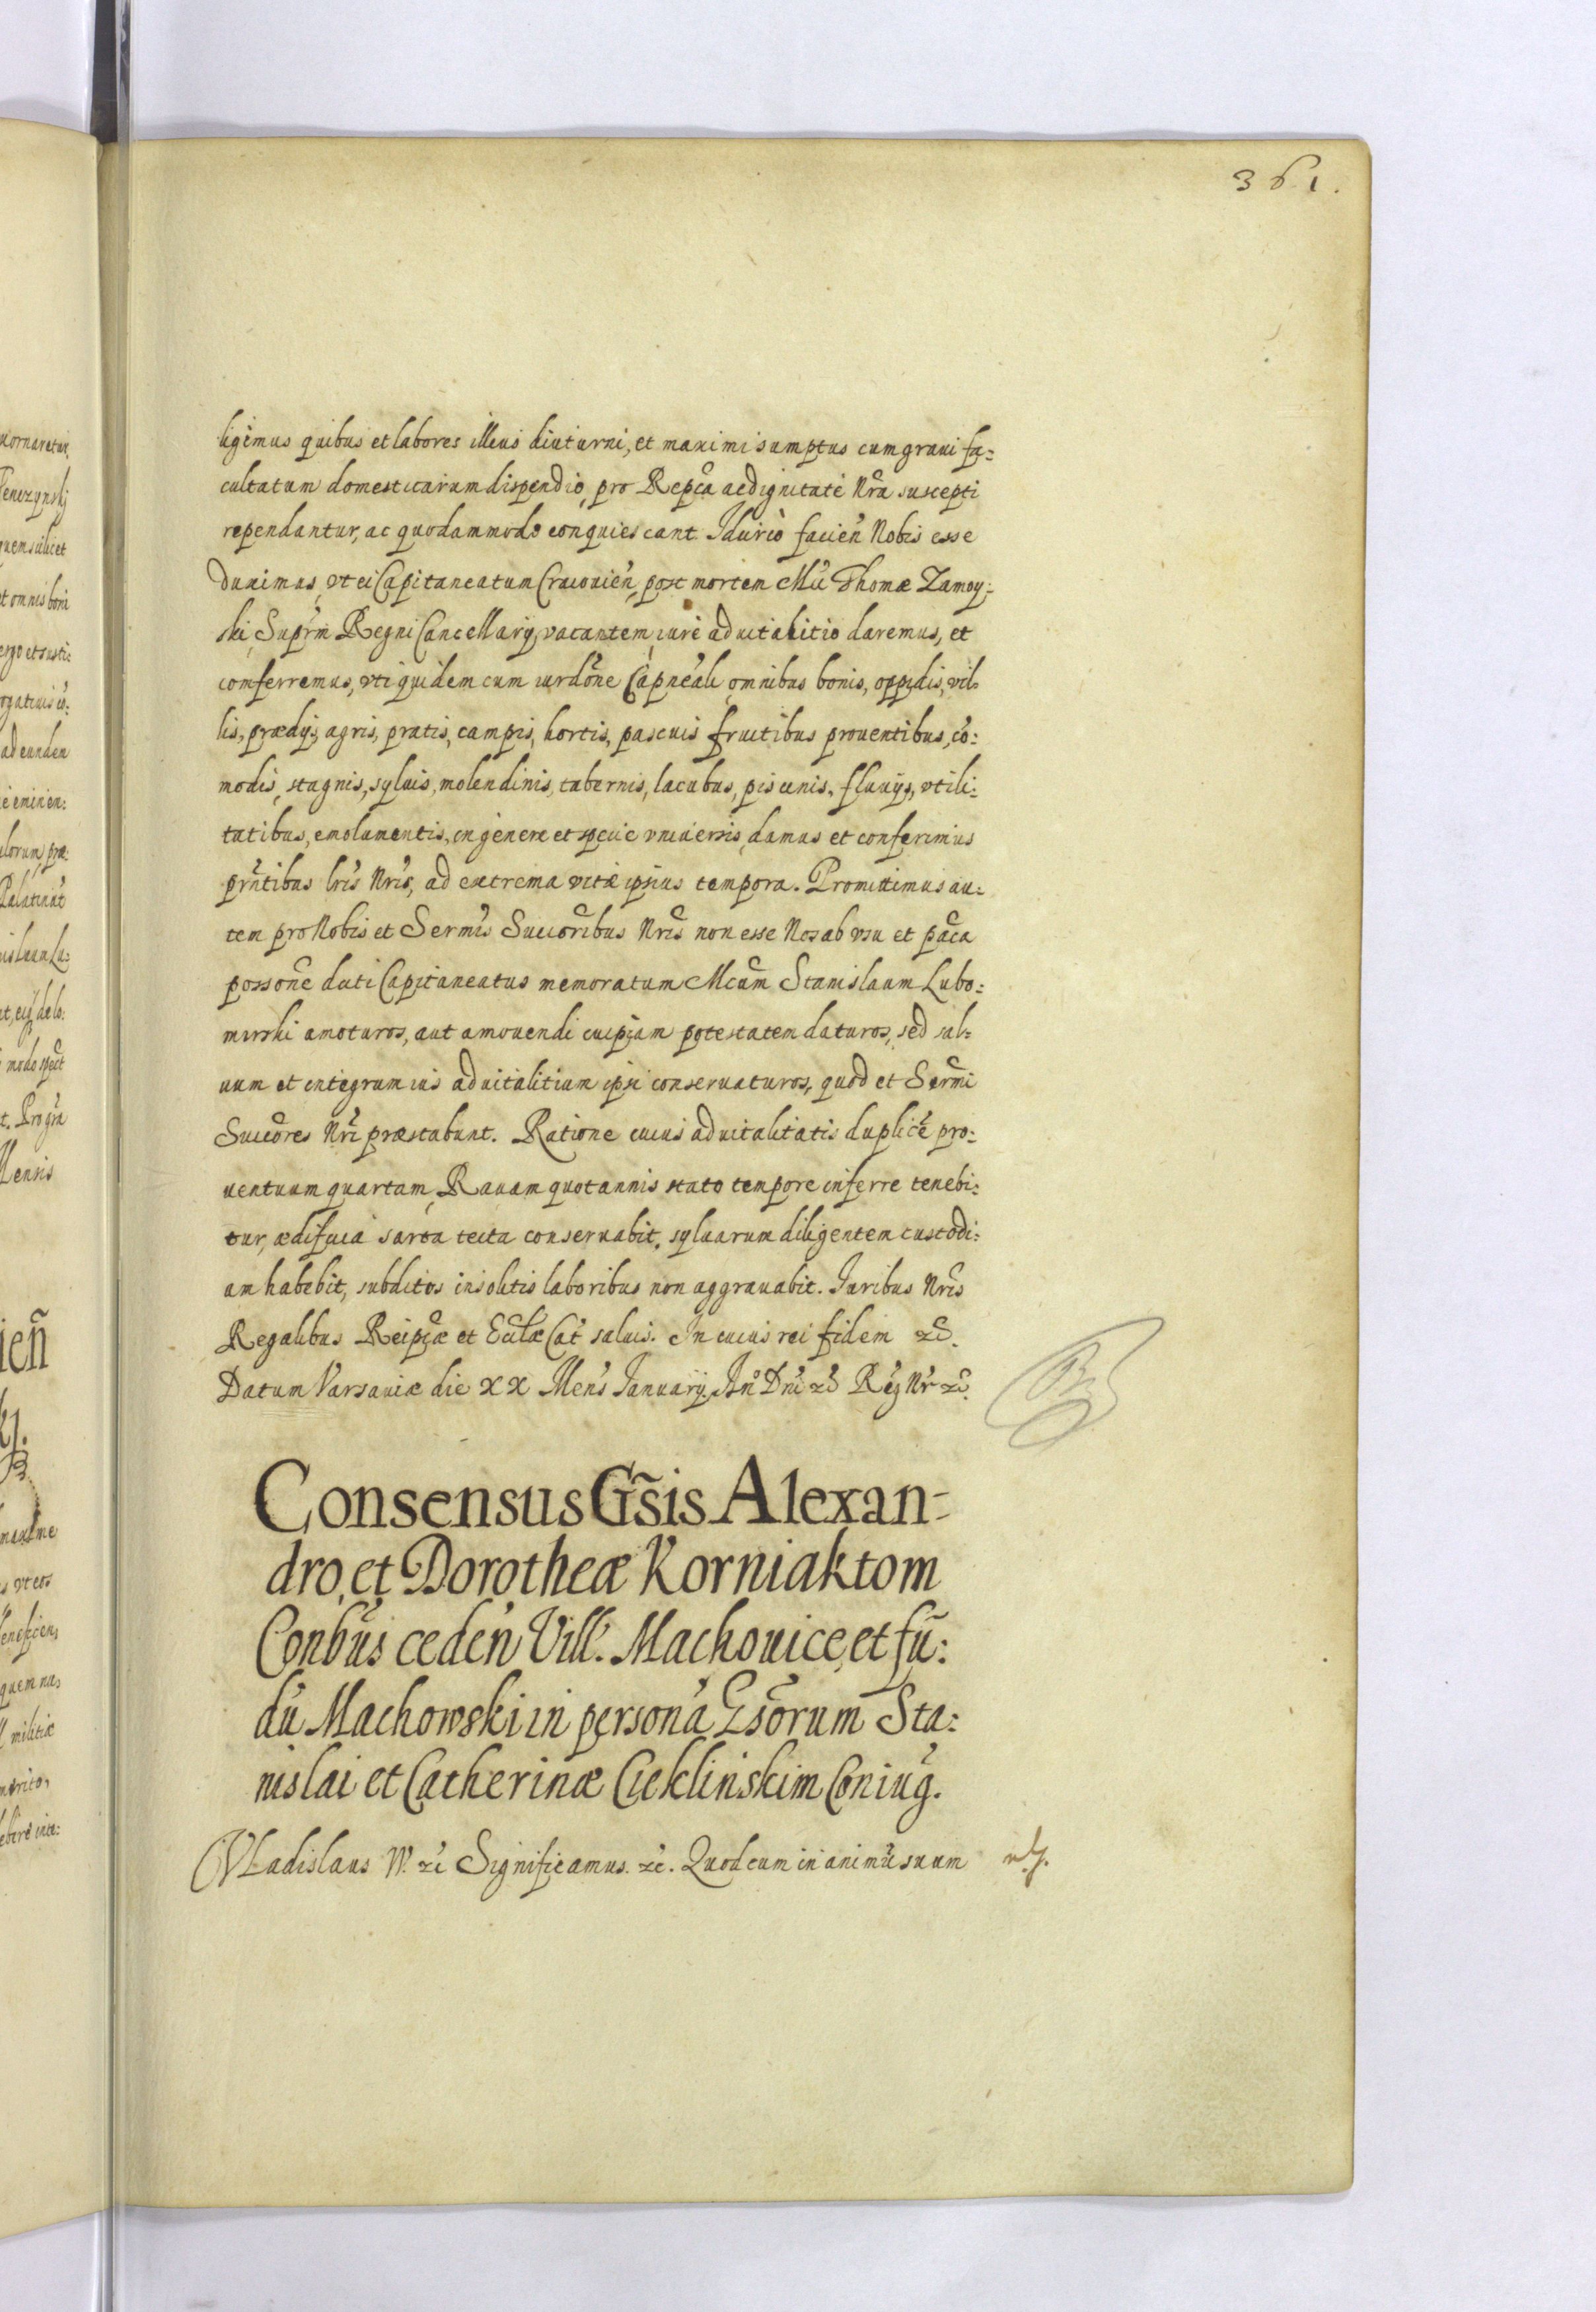 361.
ligimus quibus et labores illius diuturni, et maximi sumptus cum graui fa:
cultatum domesticarum dispendio, pro Repca ac dignitate Nra suscepti
rependantur, ac quodammodo conquiescant. Idcirco facien Nobis esse
duximus, vt ei Capitaneatum Cracouien, post mortem Mci Thomæ Zamoy:
ski, Suprm Regni Cancellarij vacantem, iure aduitalitio daremus, et
conferremus, vti quidem cum iurdone Capneali, omnibus bonis, oppidis, vil=
lis, prædijs, agris, pratis, campis, hortis, pascuis fructibus prouentibus, co:
modis, stagnis, syluis, molendinis, tabernis, lacubus, piscinis, fluuijs, vtili:
tatibus, emolumentis, in genere et specie vniuersis damus et conferimus
prntibus lris Nris, ad extrema vitæ ipsius tempora. Promittimus au:
tem pro Nobis et Sermis Succoribus Nris non esse Nos ab vsu et paca
possone dicti Capitaneatus memoratum Mcum Stanislaum Lubo:
mirski amoturos, aut amouendi cuipiam potestatem daturos, sed sal=
uum et integrum ius aduitalitium ipsi conseruaturos, quod et Sermi
Succores Nri præstabunt. Ratione cuius aduitalitatis duplice pro:
uentuum quartam, Rauam quotannis stato tempore inferre tenebi:
tur, ædificia sarta tecta conseruabit, syluarum diligentem custodi:
am habebit, subditos insolitis laboribus non aggrauabit. Iuribus Nris
Regalibus Reipcæ et Ecclæ Cat saluis. In cuius rei fidem zc.
Datum Varsauiæ die XX Mens Ianuarij. Ano Dni zc Reg Nr zc.
Consensus Gsis Alexan-
dro, et Dorotheæ Korniaktom
Conbus ceden Vill. Machouice, et fu:
du Machowski in persona Gsorum Sta:
nislai et Catherinæ Cieklinskim Coniug.
Vladislaus IV. zc Significamus. zc. Quod cum in animu suum